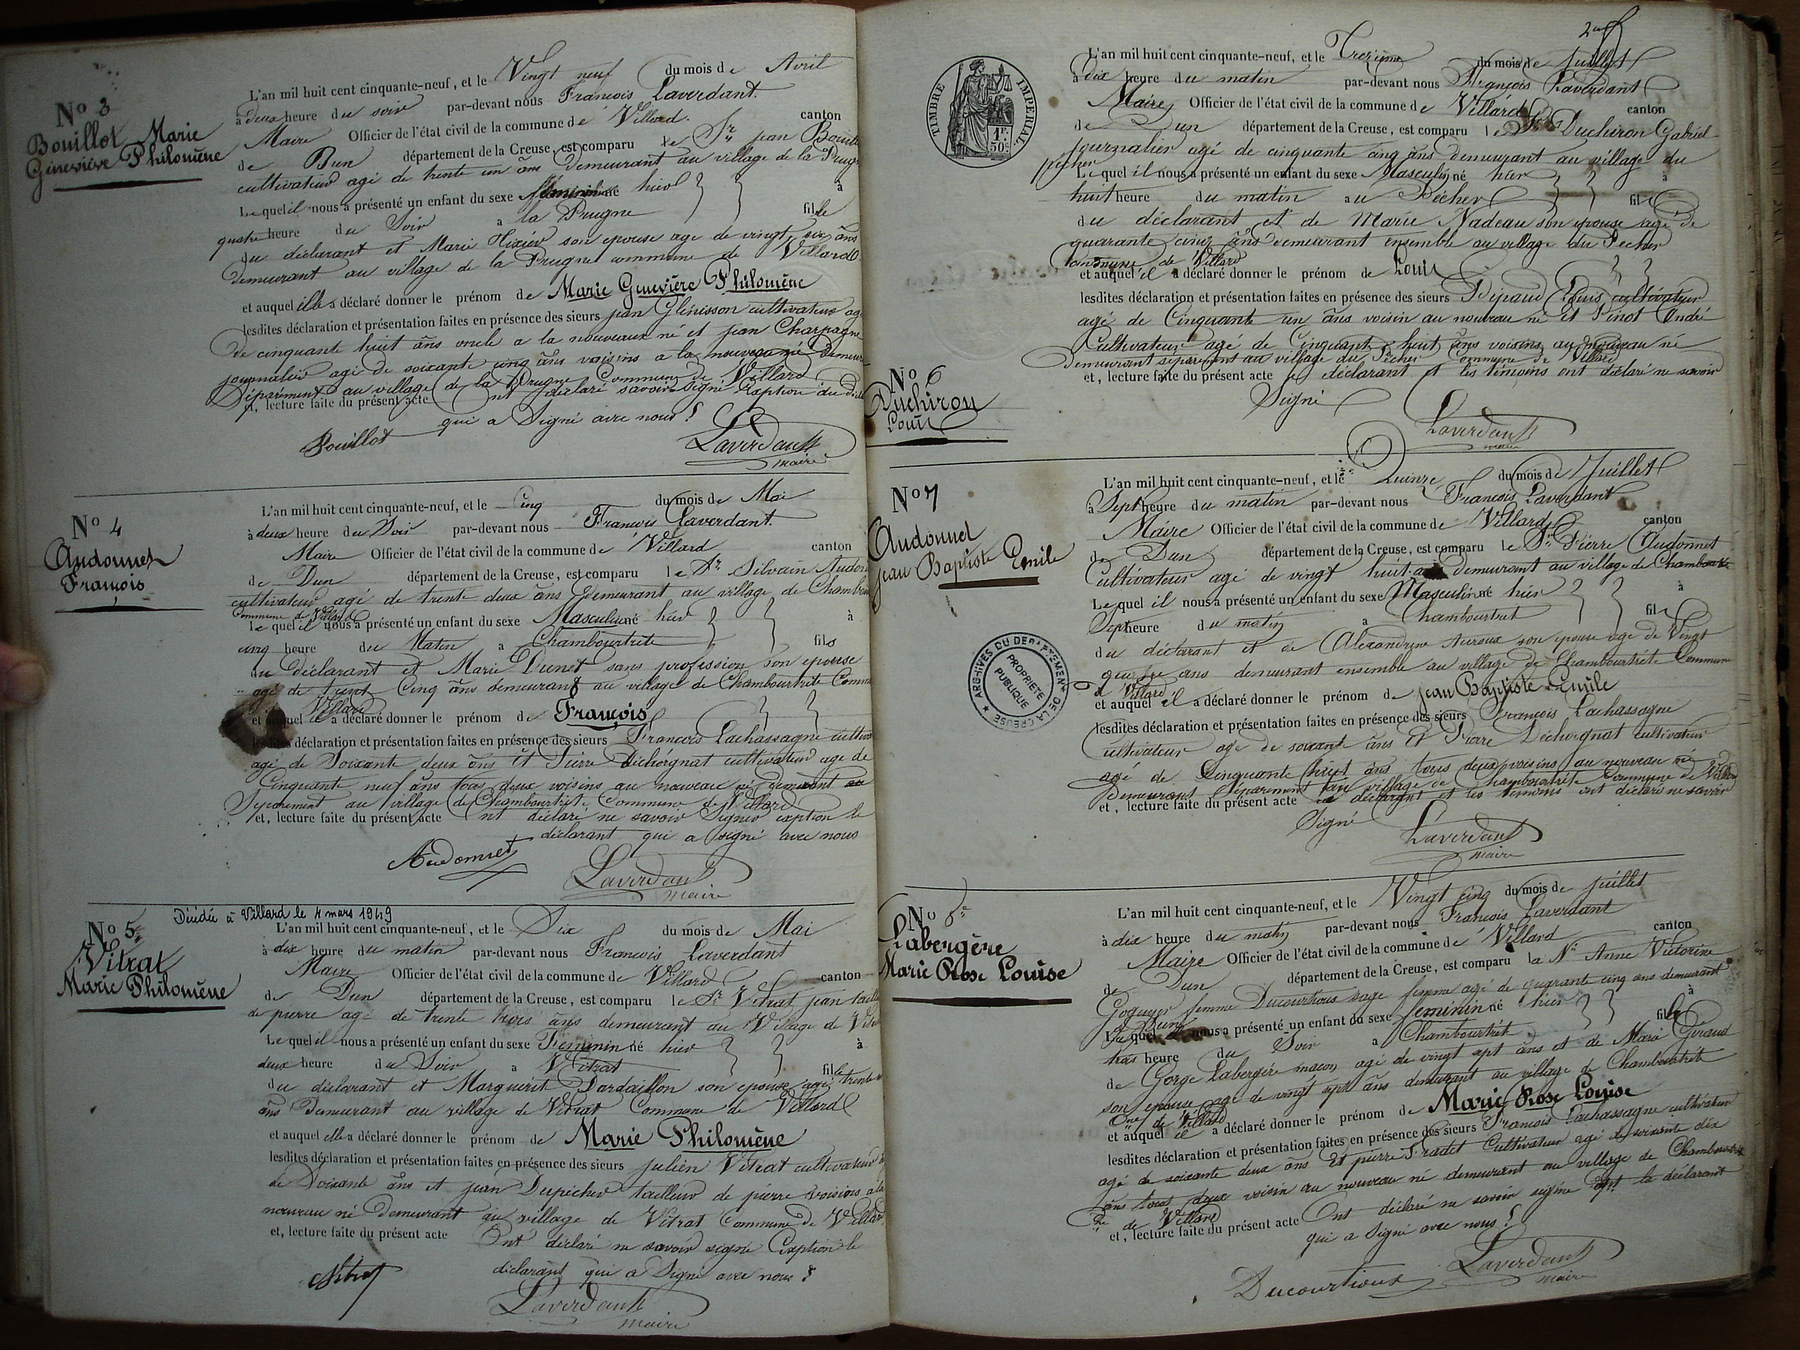 No 3
Bouillot Marie
Geneviève Philomène
L'an mil huit cent cinquante-neuf, et le Vingt neuf du mois de Avril
à deux heure du soir par-devant nous François Laverdant.
Maire Officier de l'état civil de la commune de Villard. canton
de Dun département de la Creuse, est comparu le Sr jean
cultivateur agé de trente un ans demeurant au village de la
Le quel il nous a présenté un enfant du sexe féminin né hier à
quatre heure du Soir a la Prugne fille
du déclarant et Marie son epouse age de vingt six ans
demeurant au village de la Prugne commune de Villard
et auquel elle a déclaré donner le prénom de Marie Geneviève Philomène
lesdites déclaration et présentation faites en présence des sieurs jean Glenisson cultivateur
de cinquante huit ans oncle a la nouveaux né et jean Charpagne
journalier agé de soixante cinq ans voisins a la nouveau né
Séparément au village de la Prugne Commune de Villard
et, lecture faite du présent acte Ont déclaré savoir signé Exption du
qui a Signé avec nous
Bouillot Laverdant
maire
No 4
Audonnet
François
L'an mil huit cent cinquante-neuf, et le Cinq du mois de Mai
à deux heure du Soir par-devant nous François Laverdant.
Maire Officier de l'état civil de la commune de Villard canton
de Dun département de la Creuse, est comparu le Sr Silvain
cultivateur agé de trente deux ans demeurant au village de
Commune de Villard
Le quel il nous a présenté un enfant du sexe Masculin né hier à
cinq heure du Matin a Chambourtrite fils
du déclarant et Marie Dunet sans profession son epouse
agé de Cinq ans demeurant au village de Chambourtrite
Villard
et auquel il a déclaré donner le prénom de François
déclaration et présentation faites en présence des sieurs François Lachassagne
agé de Soixante deux ans Et Pierre Dichorgnat cultivateur age de
Cinquante neuf ans tous deux voisins au nouveau né
Séparément au village de Chambourtrite Commune de Villard
et, lecture faite du présent acte Ont déclaré ne savoir Signer exption le
déclarant qui a signé avec nous
Audonnet Laverdant
maire
No 5
Décédée à Villard le 4 mars 1949
Vitrat
Marie Philomène
L'an mil huit cent cinquante-neuf, et le Dix du mois de Mai
à dix heure du matin par-devant nous François Laverdant
Maire Officier de l'état civil de la commune de Villard canton
de Dun département de la Creuse, est comparu le Sr Vitrat jean
de pierre agé de trente trois ans demeurant au Village de
Le quel il nous a présenté un enfant du sexe Feminin né hier à
deux heure du Soir a Vitrat fille
du déclarant et Marguerit Dardaillon son epouse agé trente
ans demeurant au village de Vitrat Commune de Villard
et auquel elle a déclaré donner le prénom de Marie Philomène
lesdites déclaration et présentation faites en présence des sieurs julien Vitrat cultivateur
de Soixante ans et jean Dupicher tailleur de pierre voisins a la
nouveau né demeurant au village de Vitrat Commune de Villard
et, lecture faite du présent acte Ont déclaré ne savoir signé Exption le
déclarant qui a Signé avec nous
Vitrat
Laverdant
maire
TIMBRE IMPERIAL
1F 50c
No 6
Duchiron
Louis
L'an mil huit cent cinquante-neuf, et le Treizième du mois de juillet
à dix heure du matin par-devant nous François Laverdant
Maire Officier de l'état civil de la commune de Villard canton
de Dun département de la Creuse, est comparu le Sr Duchiron Gabriel
journalier agé de cinquante cinq ans demeurant au village du
pecher
Le quel il nous a présenté un enfant du sexe Masculin né hier à
huit heure du matin au Pécher fils
du déclarant et de Marie Nadeau son epouse agé de
quarante cinq ans demeurant ensemble au village du Pecher
Commune de Villard
et auquel il a déclaré donner le prénom de Louis
lesdites déclaration et présentation faites en présence des sieurs cultivateur
agé de Cinquante un ans voisin au nouveau né et Pinot André
Cultivateur agé de Cinquante huit ans voisins au nouveau né
demeurant séparément au village du Pécher Commune de Villard
et, lecture faite du présent acte le déclarant et les témoins ont déclaré ne savoir
Signé
Laverdant
maire
No 7
Audonnet
jean Baptiste Emile
L'an mil huit cent cinquante-neuf, et le Quinze du mois de Juillet
à Sept heure du matin par-devant nous François Laverdant
Maire Officier de l'état civil de la commune de Villard canton
de Dun département de la Creuse, est comparu le Sr Pierre Audonnet
Cultivateur agé de vingt huit ans demeurant au village de
Le quel il nous a présenté un enfant du sexe Masculin né hier à
Sept heure du matin a Chambourtrit fils
du déclarant et de Alexandrine son epouse agé de Vingt
ans demeurant ensemble au village de Chambourtrite Commune
de Villard
et auquel il a déclaré donner le prénom de jean Baptiste Emile
lesdites déclaration et présentation faites en présence des sieurs François Lachassagne
cultivateur agé de soixante ans Et Pierre Dechorgnat cultivateur
agé de Cinquante huit ans tous deux voisins au nouveau né
demeurant séparément au village de Chambourtrite Commune de Villard
et, lecture faite du présent acte le déclarant et les témoins ont déclaré ne savoir
Signé
Laverdant
maire
ARCHIVES DU DEPARTEMENT DE LA CREUSE
PROPRIETE PUBLIQUE
No 8
Labergère
Marie Rose Louise
L'an mil huit cent cinquante-neuf, et le Vingt cinq du mois de juillet
à dix heure du matin par-devant nous François Laverdant
Maire Officier de l'état civil de la commune de Villard canton
de Dun département de la Creuse, est comparu la Anne Victorine
femme Ducourtioux sage femme agé de quarante cinq ans demeurant
a Dun
quel nous a présenté un enfant du sexe feminin né hier à
trois heure du Soir a Chambourtrit fille
de Gorge Labergère maçon agé de vingt sept ans et de Marie Giraud
son epouse agé de vingt sept ans demeurant au village de Chambourtrite
Cne de Villard
et auquel il a déclaré donner le prénom de Marie Rose Louise
lesdites déclaration et présentation faites en présence des sieurs François Lachassagne cultivateur
agé de soixante deux ans Et pierre Cultivateur agé de soixante dix
ans tous deux voisin au nouveau né demeurant au village de
Cne de Villard
et, lecture faite du présent acte Ont déclaré ne savoir signé la déclarant
qui a Signé avec nous
Ducourtioux
Laverdant
maire